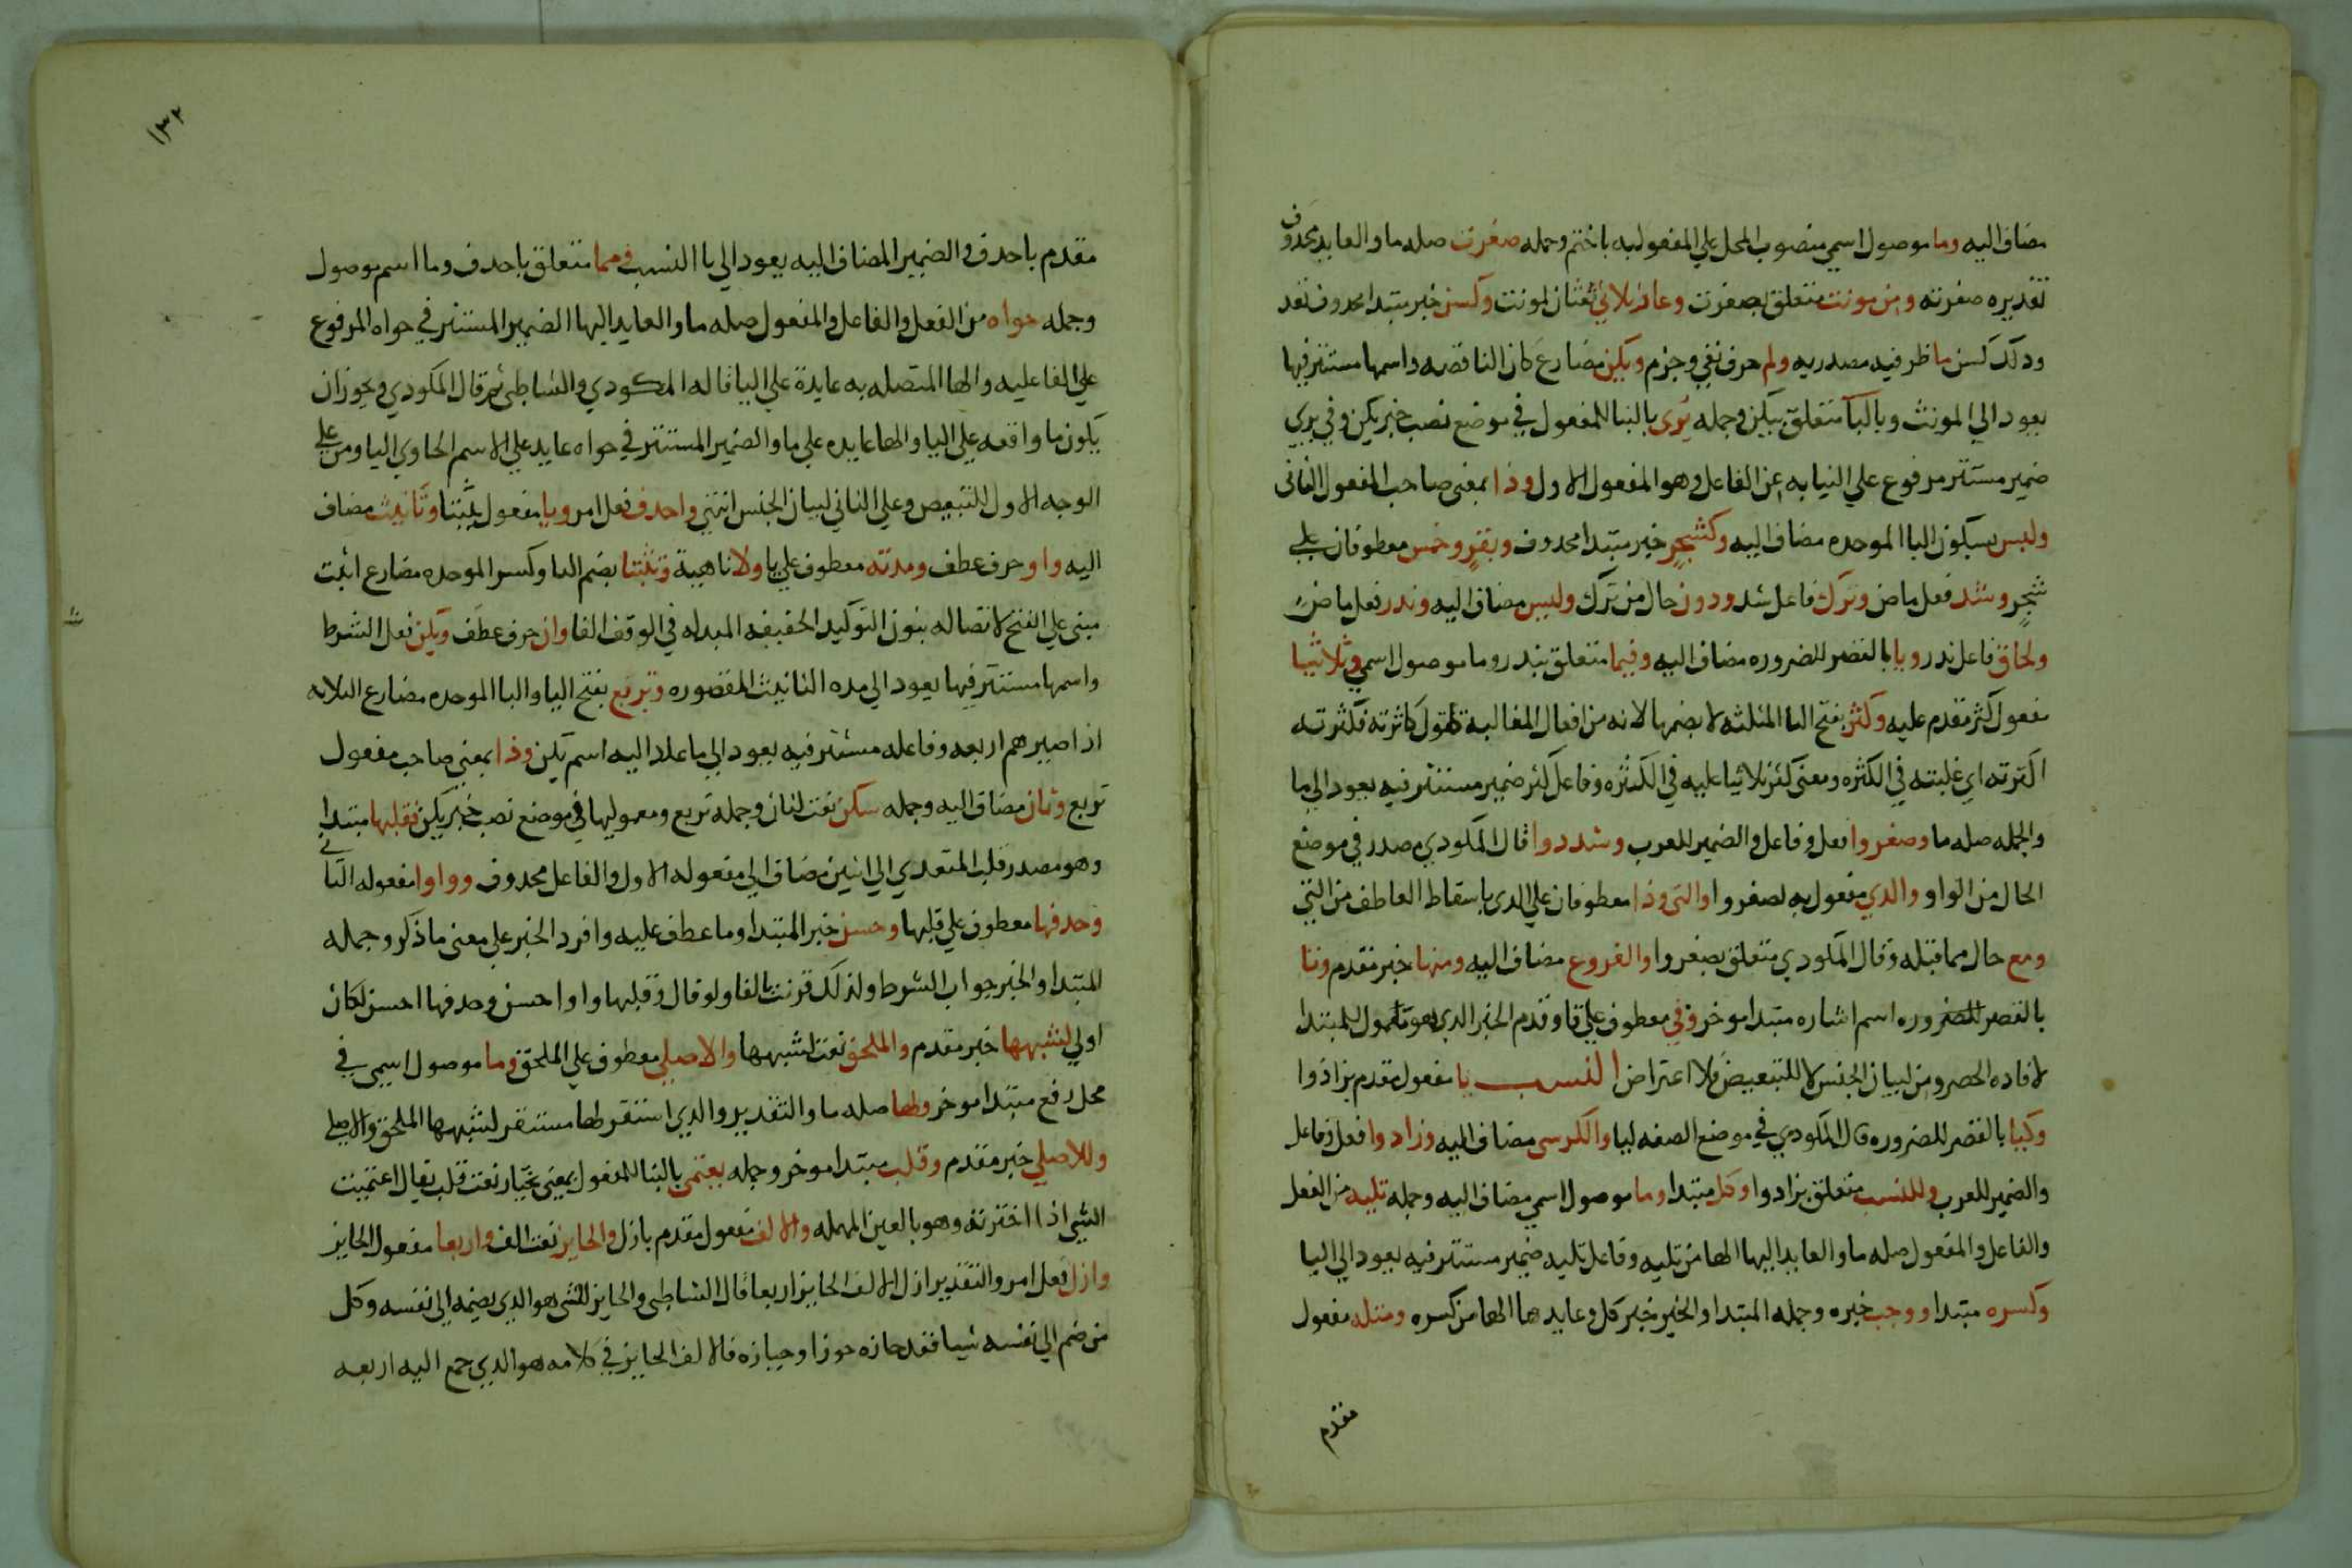 مضاف اليه وما موصول اسمي منصوب المحل علي المفعوليه باختم وجمله صغرت صله ما والعايد محذوف
تقديره صغرته ومن مونث متعلق بصغرت وعار ثلاثي نعتان لمونث وكسن خبر مبتدا محذوف تقد
ودلك كسن ما ظرفيه مصدريه ولم حرف نفي وجزم ويكن مضارع كان الناقصه واسمها مستتر فيها
يعود الي المونث وبالتا متعلق بيكن وجمله يرى بالبنا للمفعول في موضع نصب خبر يكن وفي يري
ضمير مستتر مرفوع علي النيابه عن الفاعل وهو المفعول الاول وذا بمعني صاحب المفعول الثاني
ولبس بسكون البا الموحده مضاف اليه وكشجر خبر مبتدا محدوف وبقر وخمس معطوفان علي
شجر وشد فعل ماض وترك فاعل شد ودون حال من ترك ولبس مضاف اليه وندر فعل ماض
ولحاق فاعل ندر ويا بالقصر للضروره مضاف اليه وفيما متعلق بندر وما موصول اسمي وثلاثيا
مفعول كثر مقدم عليه وكثر بفتح الثا المثلثه لا بضمها لانه من افعال المغالبة تقول كاثرته فكثرته
اكثرته اي غلبته في الكثره ومعنى كثر ثلاثيا غلبه في الكثره وفاعل كثر ضمير مستتر فيه يعود الي ما
والجمله صله ما وصغروا فعل وفاعل والضمير للعرب وشددوا قال المكودي مصدر في موضع
الحال من الواو والدي مفعول به لصغروا والتى وذا معطوفان علي الدى باسقاط العاطف من التي
ومع حال مما قبله وقال المكودي متعلق بصغروا والفروع مضاف اليه ومنها خبر مقدم وتا
بالقصر للضروره اسم اشاره مبتدا موخر وفي معطوف علي تا وقدم الخبر الدي هو معمول للمبتدا
لافاده الحصر ومن لبيان الجنس لا للتبعيض فلا اعتراض النسب يا مفعول مقدم بزادوا
وكيا بالقصر للضروره قال المكودي في موضع الصفه ليا والكرسى مضاف اليه وزادوا فعل وفاعل
والضمير للعرب وللنسب متعلق بزادوا وكل مبتدا وما موصول اسمي مضاف اليه وجمله تليه من الفعل
والفاعل والمفعول صله ما والعايد اليها الها من تليه وفاعل تليه ضمير مستتر فيه يعود الي اليا
وكسره مبتدا ووجب خبره وجمله المبتدا والخبر خبر كل وعايدها الها من كسره ومثله مفعول
مقدم
١٣٢
مقدم باحدف والضمير المضاف اليه يعود الي يا النسب ومما متعلق باحدف وما اسم موصول
وجمله حواه من الفعل والفاعل والمفعول صله ما والعايد اليها الضمير المستتر في حواه المرفوع
علي الفاعليه والها المتصله به عايدة علي اليا قاله المكودي والشاطبي ثم قال المكودي ويجوز ان
يكون ما واقعه علي اليا والها عايده علي ما والضمير المستتر في حواه عايد علي الاسم الحاوي اليا ومن علي
الوجه الاول للتبعيض وعلي الثاني لبيان الجنس انتهي واحدف فعل امر ويا مفعول بثبتا وتانيث مضاف
اليه واو حرف عطف ومدته معطوف علي يا ولا ناهية وتثبتا بضم التا وكسر الموحده مضارع اثبت
مبني علي الفتح لاتصاله بنون التوكيد الخفيفه المبدله في الوقف الفا وان حرف عطف وتكن فعل الشرط
واسمها مستتر فيها يعود الي مده التانيث المقصوره وتربع بفتح اليا والبا الموحده مضارع الثلاثه
اذا صيرهم اربعه وفاعله مستتر فيه يعود الي ما عاد اليه اسم تكن وذا بمعني صاحب مفعول
تربع وثان مضاف اليه وجمله سكن نعت لثان وجمله تربع ومعموليها في موضع نصب خبر يكن فقلبها مبتدا
وهو مصدر قلب المتعدي الي اثنين مضاف الي مفعوله الاول والفاعل محدوف وواوا مفعوله الثاني
وحدفها معطوف علي قلبها وحسن خبر المبتدا وما عطف عليه وافرد الخبر علي معنى ما ذكر وجمله
المبتدا والخبر جواب الشرط ولذلك قرنت بالفا ولو قال وقلبها واوا حسن وحدفها احسن لكان
اولي لشبهها خبر مقدم والملحق نعت لشبهها والاصلي معطوف علي الملحق وما موصول اسمي في
محل رفع مبتدا موخر ولها صله ما والتقدير والدي استقر لها مستقر لشبهها الملحق والاصلي
وللاصلي خبر مقدم وقلب مبتدا موخر وجمله يعتمى بالبنا للمفعول بمعني يختار نعت قلب يقال اعتميت
الشي اذا اخترته وهو بالعين المهمله والالف مفعول مقدم بازل والحايز نعت الف واربعا مفعول الحايز
وازل فعل امر والتقدير ازل الالف الحايز اربعا قال الشاطبي والحايز للشى هو الدي يضمه الي نفسه وكل
من ضم الي نفسه شيا فقد حازه حوزا وحيازه فالالف الحايز في كلامه هو الدي جمع اليه اربعه